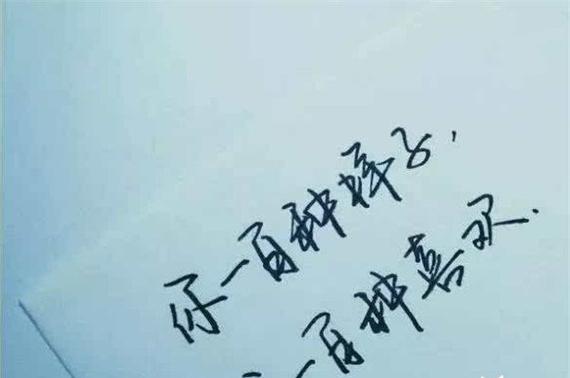 你一百种样子，
一百种喜欢.